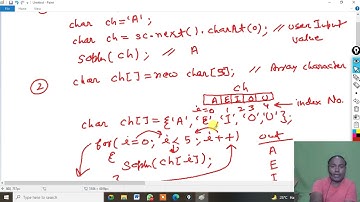 char ch='A';
char ch = sc.next().charAt(0); // user Input value
sopln(ch); // A
② char ch[] = new char[5]; // Array character
ch
A E I O U
i=0 1 2 3 4 ← index No.
char ch[] = {'A', 'E', 'I', 'O', 'U'};
for(i=0; i<5; i++) out
{ A
sopln(ch[i]); E
} I